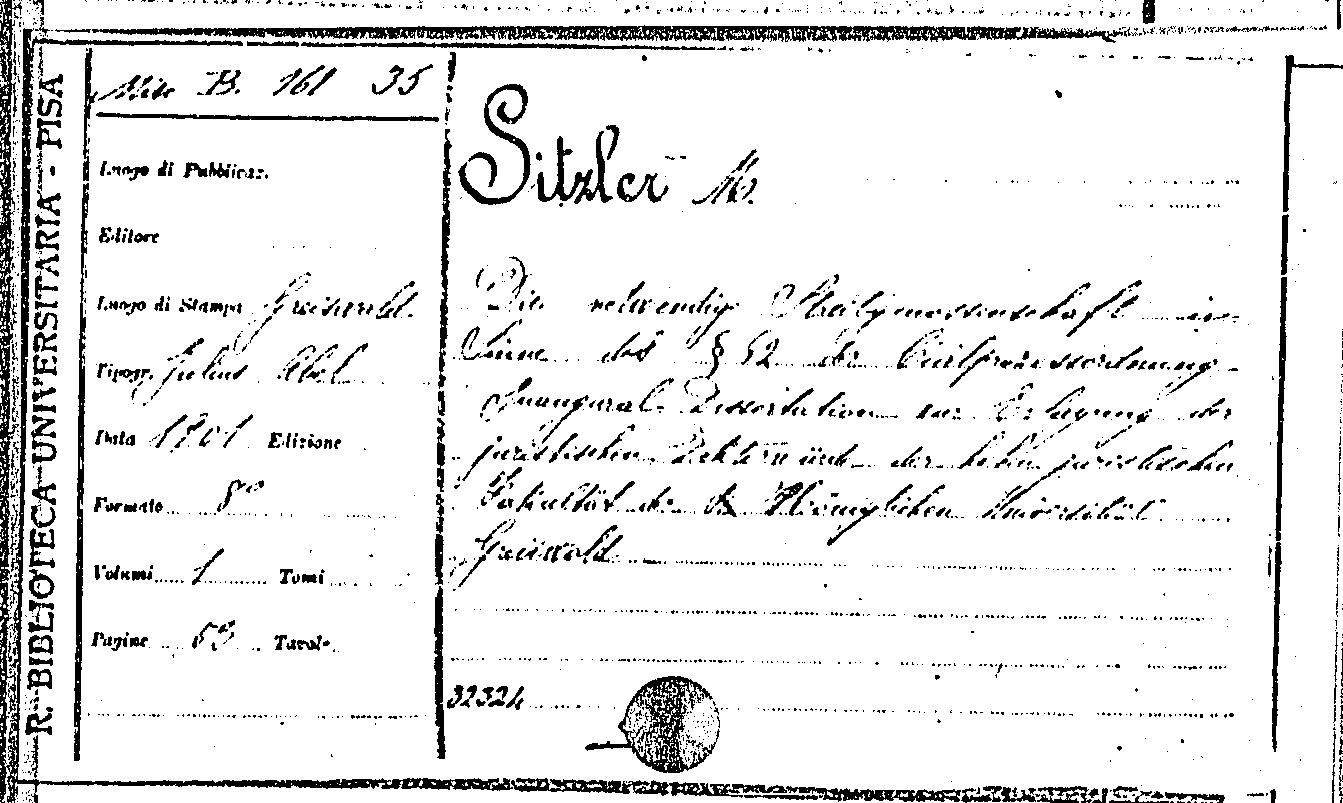 R. BIBLIOTECA UNIVERSITARIA - PISA
Misc B. 161 35
Luogo di Pubblicaz.
Editore
Luogo di Stampa Greiswald.
Tipogr. Julius Abel
Data 1901 Edizione
Formato 8°
Volumi 1 Tomi
Pagine 63 Tavole
Sitzler M.
Die notwendige Streitgenossenschaft im
Sinne des § 62 der Civilprozessordnung
Inaugural-Dissertation zur Erlagung der
juristischen Doktorwürde der hohen juristischen
Fakultät der Königlichen Universität
Greiswald
32324